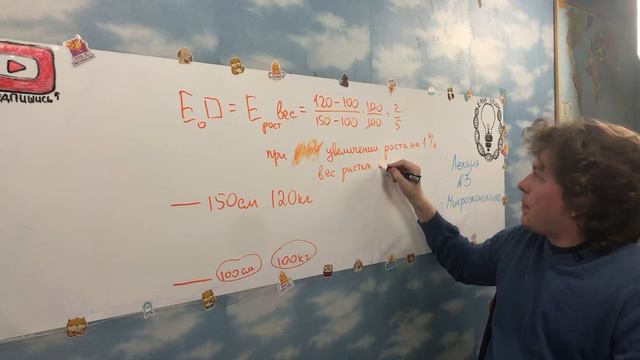 дпишись↑
E₀D = E рост вес = 120-100/150-100 · 100/100 = 2/5
при увеличении роста на 1%
вес растет
— 150см 120кг
— 100см 100кг
Лекция
№3
Микроэкономика